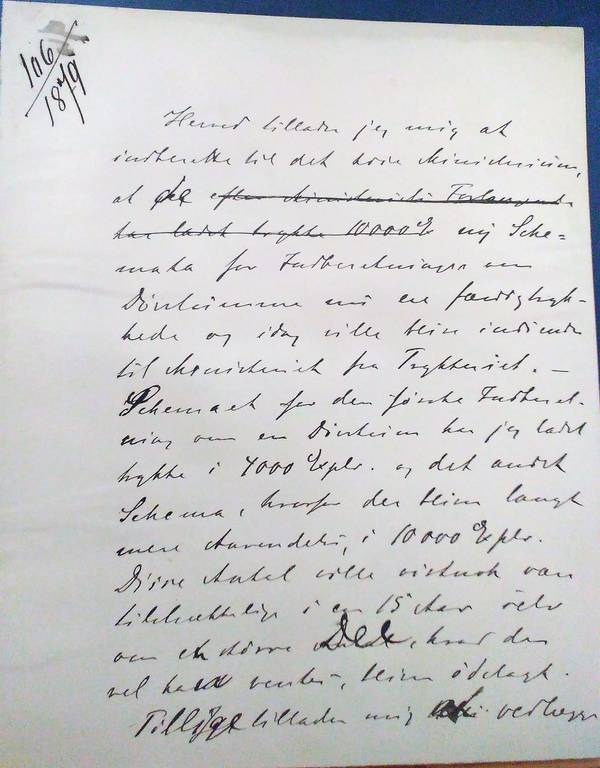 106
18 4/9
Herved tillader jeg mig at
indberette til det höie Ministerium,
at de efter Ministeriets Forlangende
har ladet trykke 10000 Ex ny Sche=
mata for Indberetninger om
Dövstumme nu ere færdigtryk-
kede og idag ville blive indsendte
til Ministeriet fra Trykkeriet. –
Schemaet for den første Indberet-
ning om en Dövstum har jeg ladet
trykke i 4000 Explr. og det andet
Schema, hvorfor der bliver langt
mere Anvendelse, i 10000 Explr.
Disse Antal ville vistnok være
tilstrækkelige i en 15 Aar selv
om en större Deel, hvad der
vel kan ventes, bliver ödelagt.
Tilligt tillader mig at vedlægge